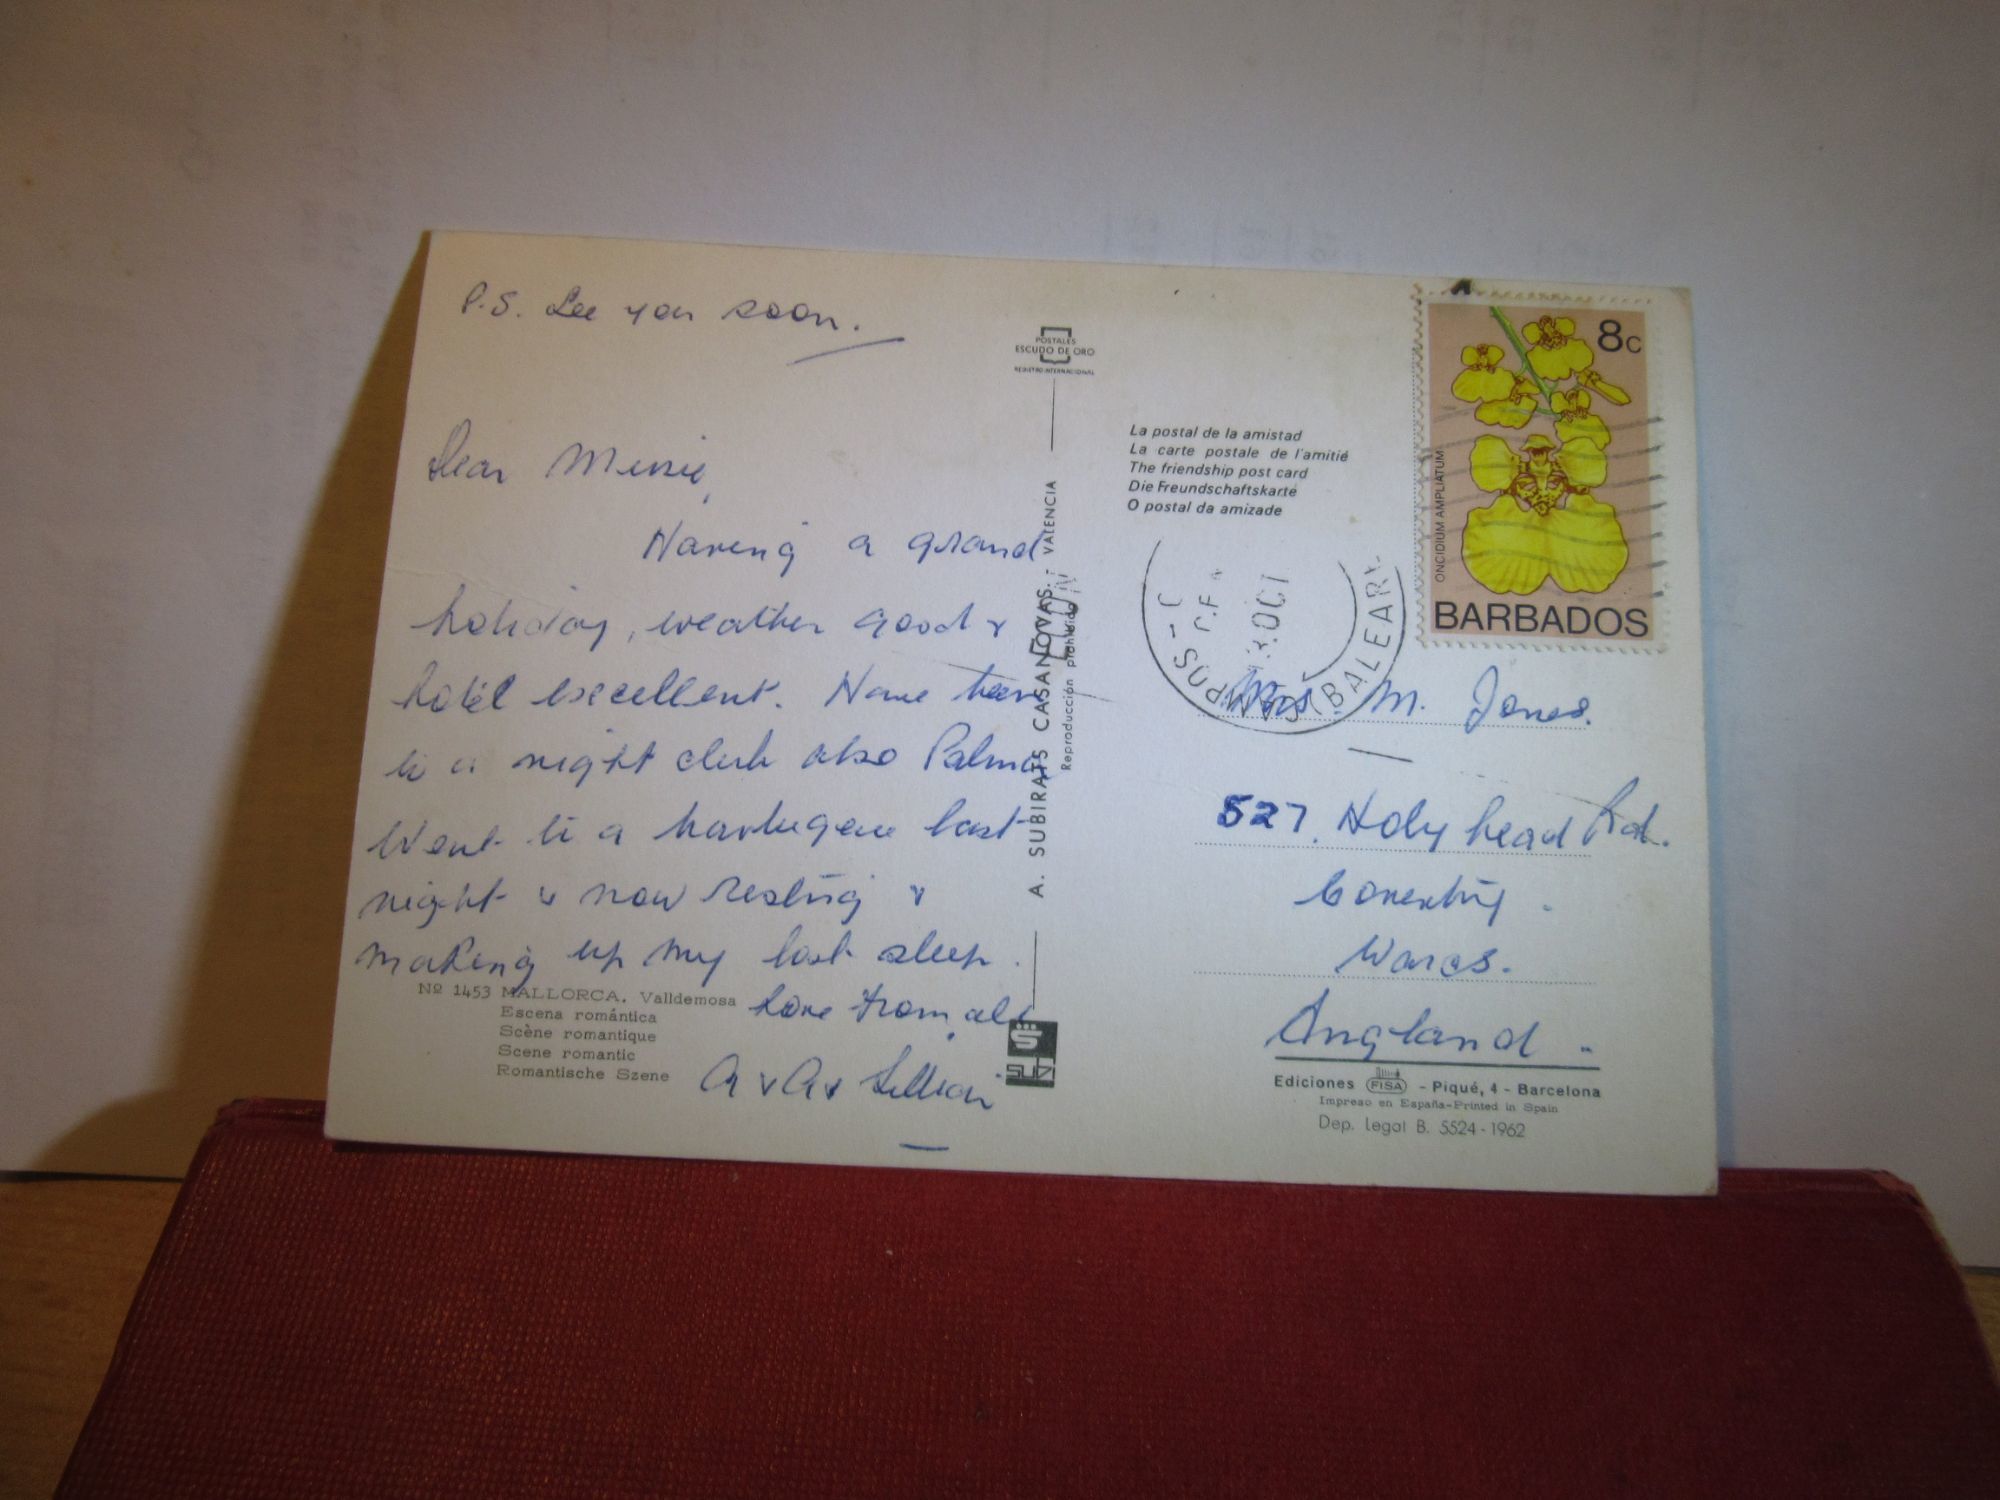 P.S. See you soon.
Dear Minnie,
Having a grand
holiday, weather good &
hotel excellent. Have been
to a night club also Palma
Went to a barbeque last
night & now resting &
making up my lost sleep.
Love from all
A & A & Lillian
Nº 1453 MALLORCA. Valldemosa
Escena romántica
Scène romantique
Scene romantic
Romantische Szene
POSTALES
ESCUDO DE ORO
REGISTRO INTERNACIONAL
A. SUBIRATS CASANOVAS. VALENCIA
Reproducción prohibida
SUBI
La postal de la amistad
La carte postale de l'amitié
The friendship post card
Die Freundschaftskarte
O postal da amizade
8c
ONCIDIUM AMPLIATUM
BARBADOS
OCT
(BALEAR
Mrs. M. Jones.
527. Holyhead Rd.
Coventry.
Warcs.
England.
Ediciones FISA - Piqué, 4 - Barcelona
Impreso en España-Printed in Spain
Dep. Legal B. 5524-1962